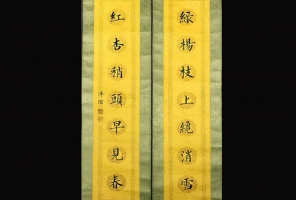 綠楊枝上纔消雪
紅杏稍頭早見春